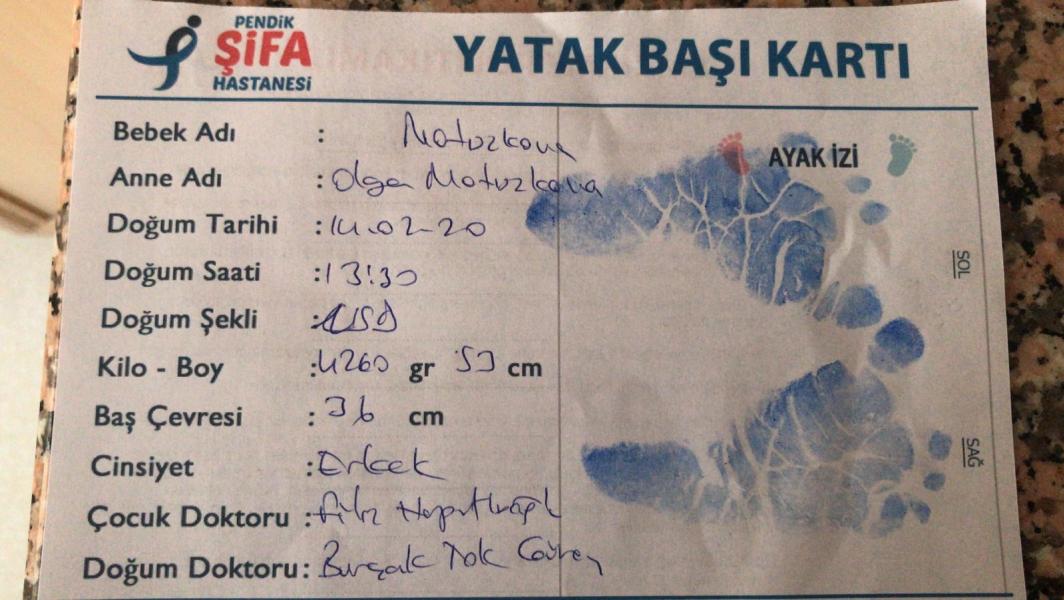 PENDİK
ŞİFA
HASTANESİ
YATAK BAŞI KARTI
Bebek Adı : Matuzkova
Anne Adı : Olga Matuzkova
Doğum Tarihi : 14.02-20
Doğum Saati : 13:30
Doğum Şekli :
Kilo - Boy : 4260 gr 53 cm
Baş Çevresi : 36 cm
Cinsiyet : Erkek
Çocuk Doktoru :
Doğum Doktoru: Burçak Tok
AYAK İZİ
SOL
SAĞ